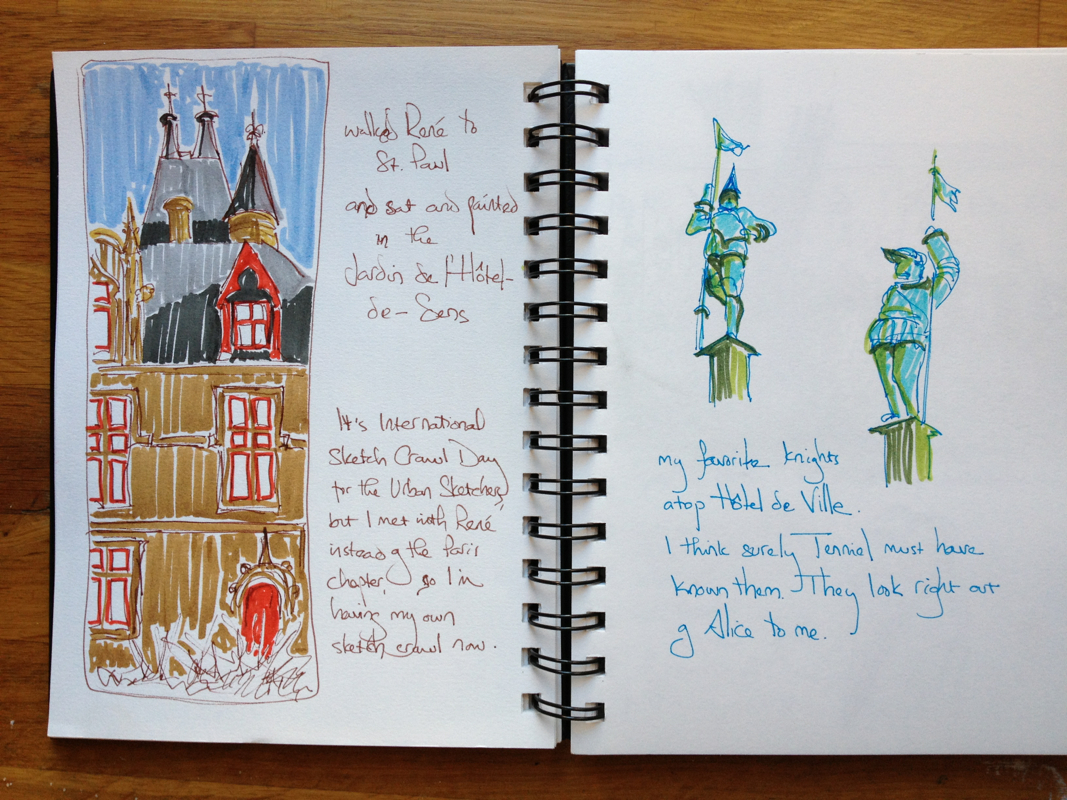 walked René to
St. Paul
and sat and painted
in the
Jardin de l'Hôtel-
de-Sens
It's International
Sketch Crawl Day
for the Urban Sketchers,
but I met with René
instead of the Paris
chapter, so I'm
having my own
sketch crawl now.
my favorite knights
atop Hôtel de Ville.
I think surely Tenniel must have
known them. They look right out
of Alice to me.